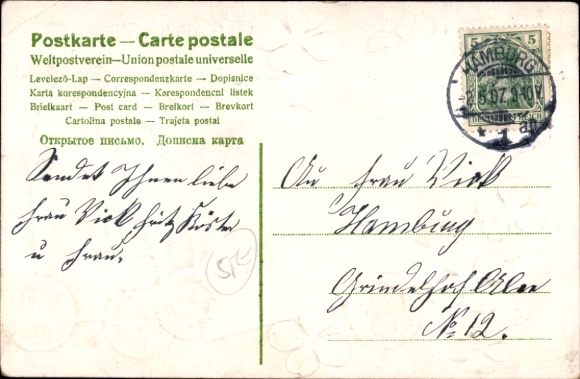 Postkarte — Carte postale
Weltpostverein—Union postale universelle
Levelező-Lap — Correspondenzkarte — Dopisnice
Karta korespondencyjna — Korespondencni listek
Briefkaart — Post card — Brefkort — Brevkort
Cartolina postale — Trajeta postal
Открытое письмо. Дописна карта
Sendet Ihnen liebe
Frau Vick Fritz Köster
u Frau.
5 5
HAMBURG
5.07. 9-10V
DEUTSCHES REICH
* 1
An Frau Vick
Hamburg
Grindelhof Alee
No 12.